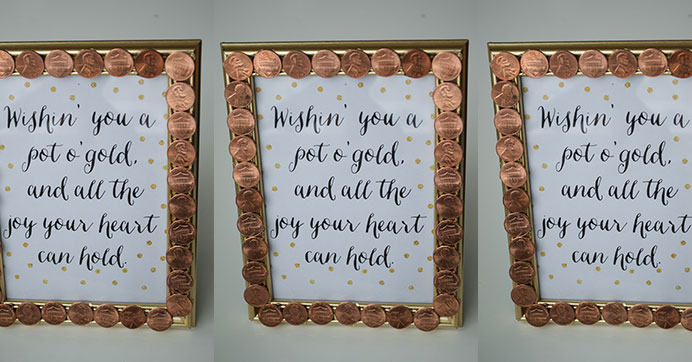 Wishin' you a
pot o'gold,
and all the
joy your heart
can hold.
Wishin' you a
pot o'gold,
and all the
joy your heart
can hold.
Wishin' you a
pot o'gold,
and all the
joy your heart
can hold.